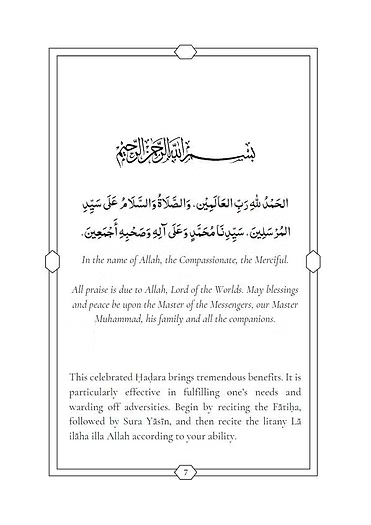 بسم الله الرحمن الرحيم
الحَمْدُ لِلّٰهِ رَبِّ العَالَمِيْن، وَالصَّلَاةُ وَالسَّلَامُ عَلَى سَيِّدِ
المُرْسَلِينَ، سَيِّدِنَا مُحَمَّدٍ وَعَلَى آلِهِ وَصَحْبِهِ أَجْمَعِينَ.
In the name of Allah, the Compassionate, the Merciful.
All praise is due to Allah, Lord of the Worlds. May blessings
and peace be upon the Master of the Messengers, our Master
Muhammad, his family and all the companions.
This celebrated Ḥaḍara brings tremendous benefits. It is
particularly effective in fulfilling one's needs and
warding off adversities. Begin by reciting the Fātiḥa,
followed by Sura Yāsīn, and then recite the litany Lā
ilāha illa Allah according to your ability.
7